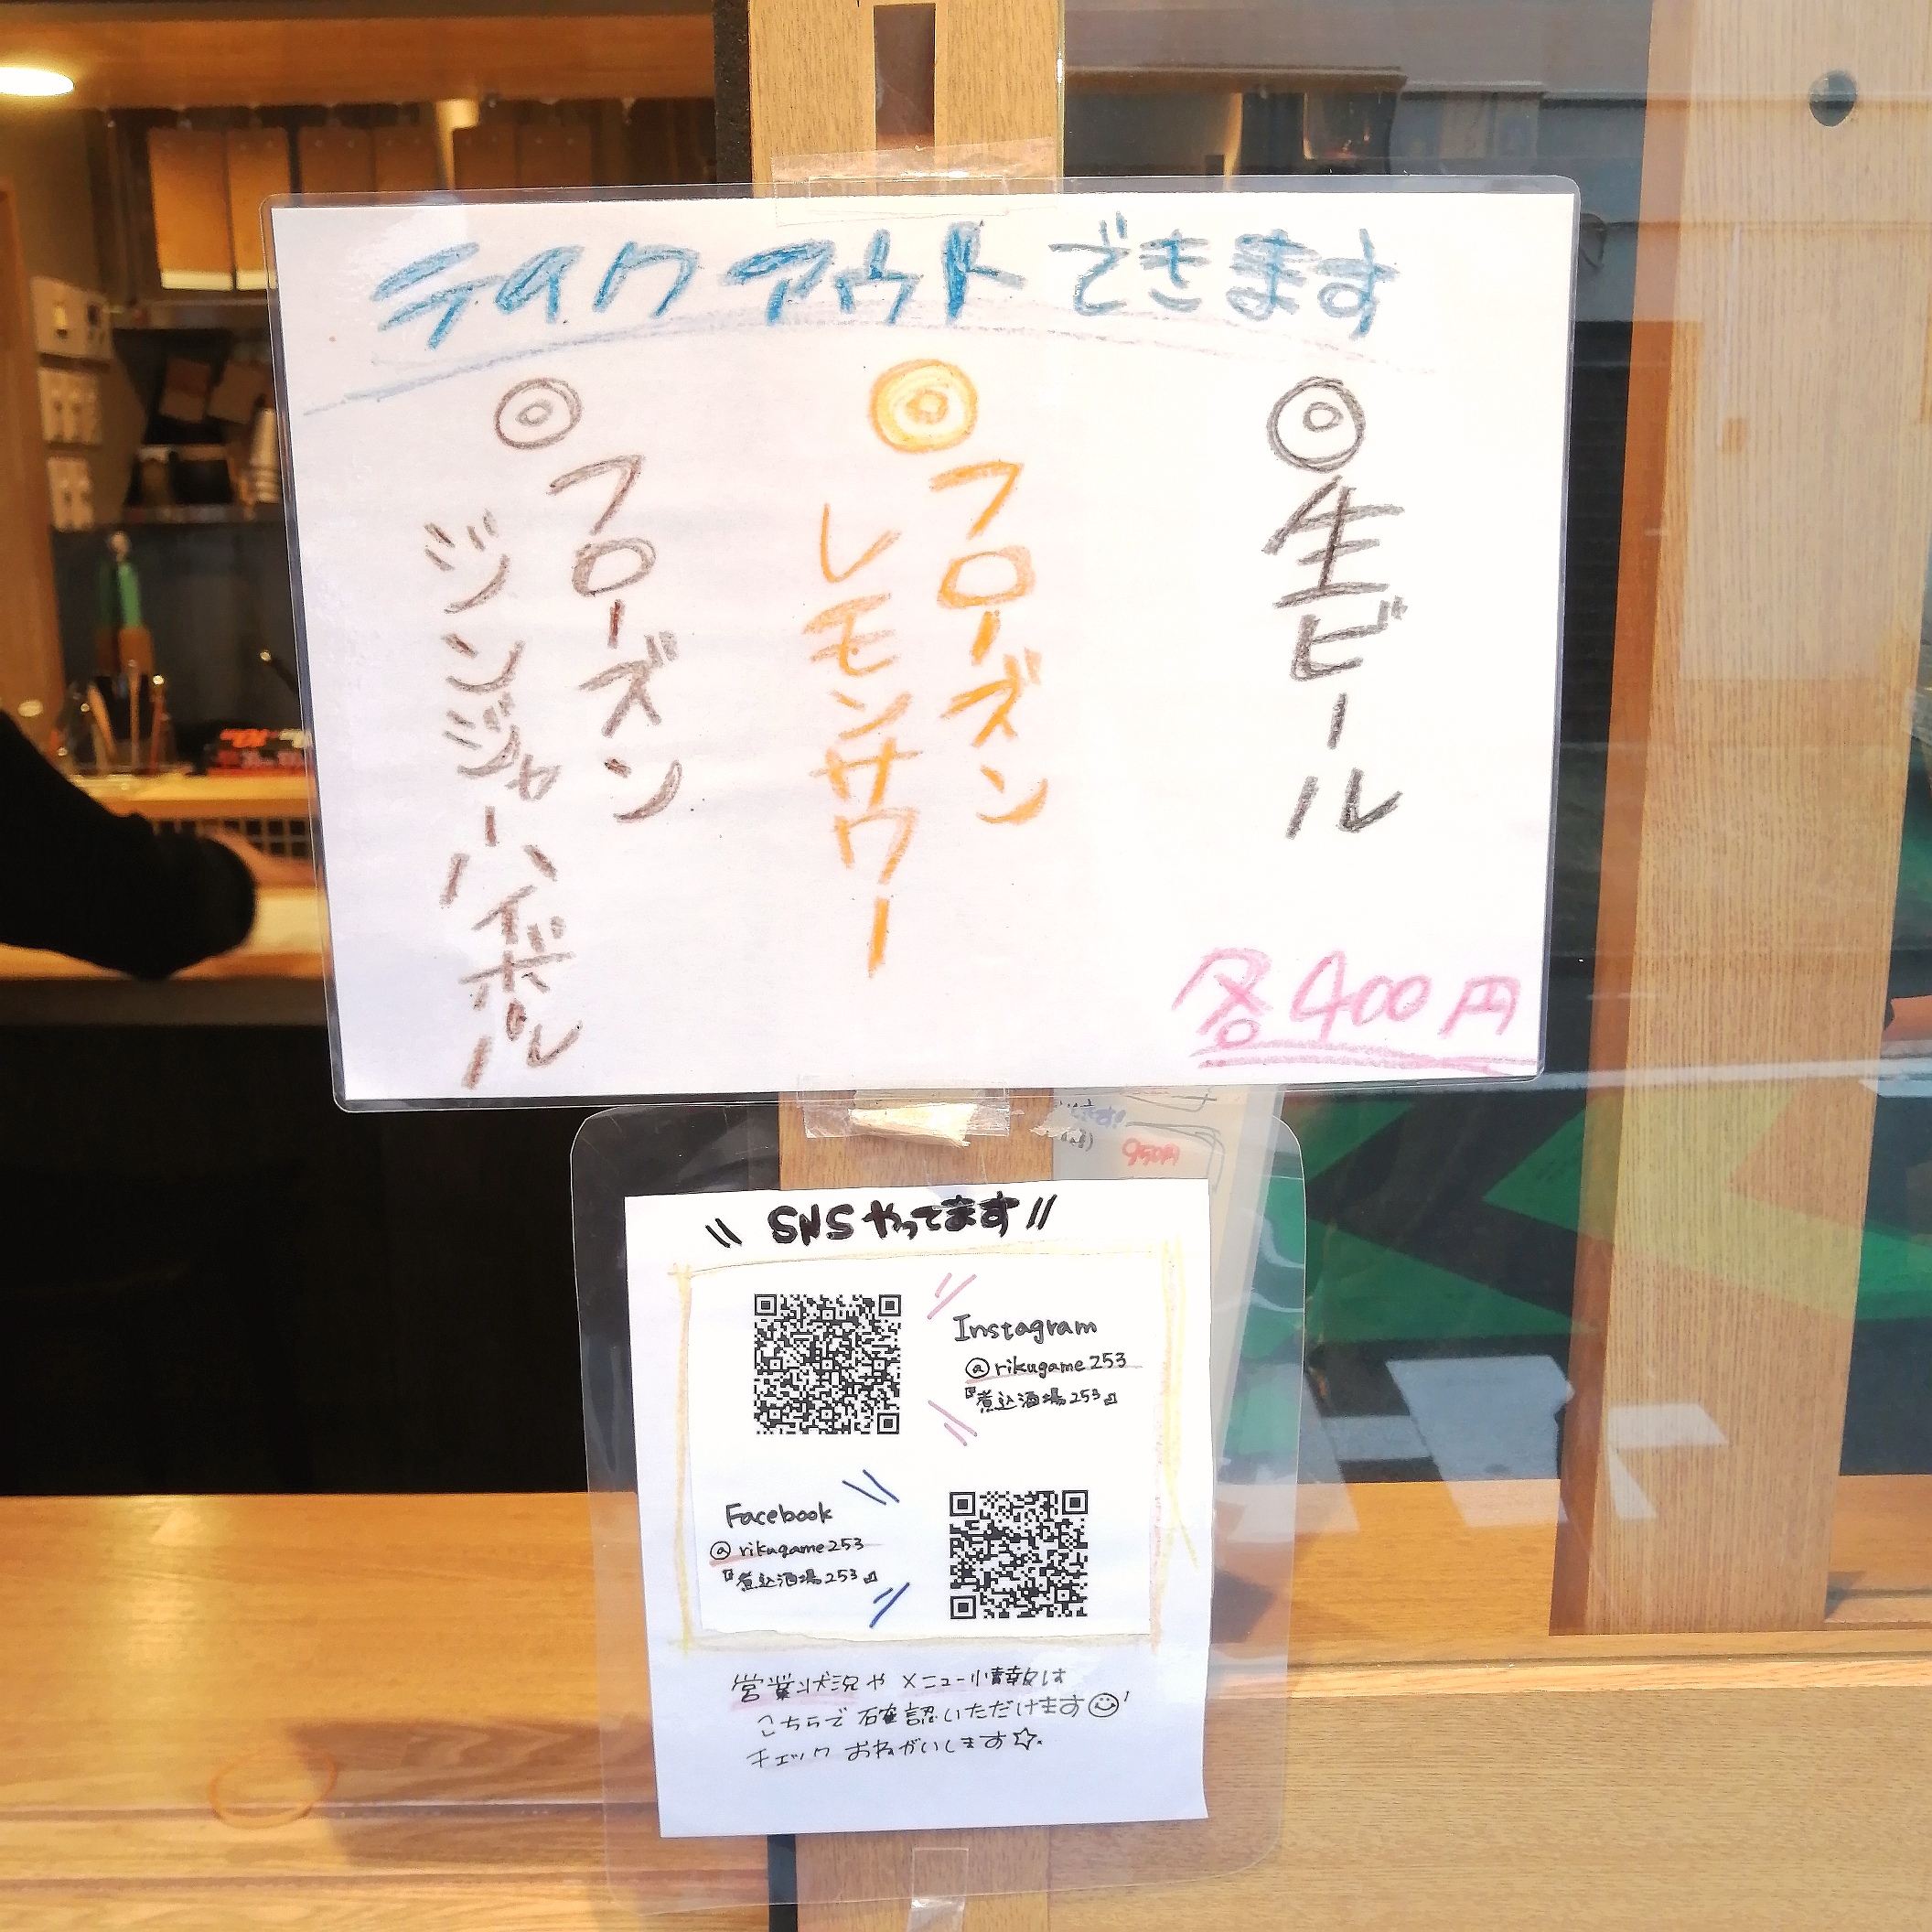 テイクアウトできます
◎生ビール
◎フローズン
レモンサワー
◎フローズン
ジンジャーハイボール
各400円
950円
\\ SNSやってます //
Instagram
@rikugame253
『煮込酒場253』
Facebook
@rikugame253
『煮込酒場253』
営業状況やメニュー情報は
こちらで確認いただけます☺!
チェックおねがいします☆.